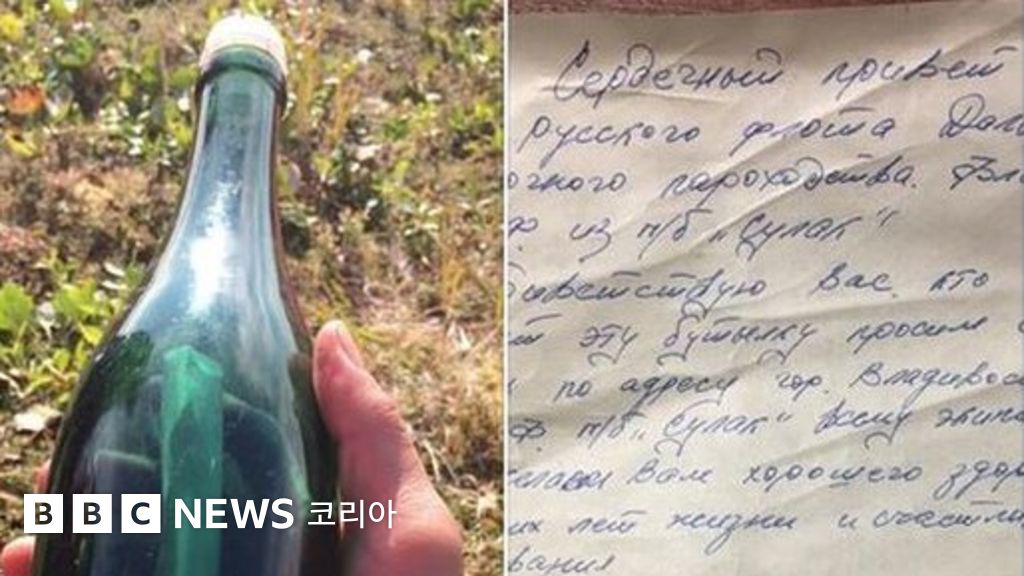 BBC NEWS 코리아
Сердечный привет
русского флота Даль
очного пароходства. Вла
ф из п/б "Сулак"
иветствую Вас кто
ет эту бутылку просим
по адресу гор. Владивос
ф. п/б "Сулак" всему экипа
елаем Вам хорошего здор
их лет жизни и счастли
вания